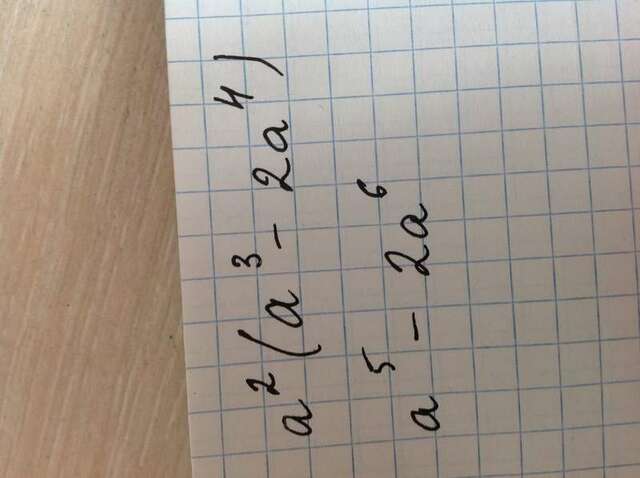 a²(a³ - 2a⁴)
a⁵ - 2a⁶